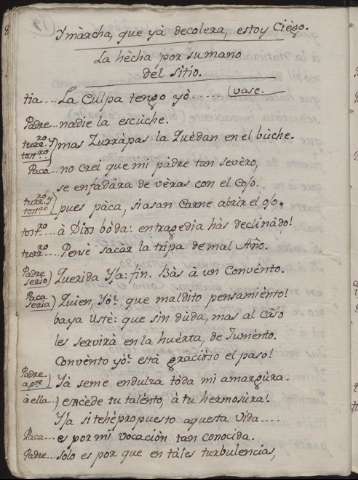 8
Ymàrcha, que yà decolera, estoy Ciègo.
La hècha por sumano
dèl sitio.
tia.... La Culpa tengo yò...... vase.
Padre.. nadie la escùche.
mas Zurràpas la Zuèdan en el bùche.
Paca.. no crei que mi pàdre tan sevèro,
se enfadàra de vèras con el Oso.
pues pàca, si asan Carne abrir el ojo.
à Dios bòda: entragedia hàs declinàdo!
Pensè sacàr la tripa de mal Año.
Padre serio) Querida Yja: fin. Bàs à un Convènto.
Paca seria) Quien, Yò? que maldito pensamiènto!
baya Ustè: que sin dùda, mas al Càso
les servirà en la huèrta, de Jumènto.
Convènto yò? està graciòso el pàso!
Padre apte) Yà seme endulza tòda mi amargùra.
à ella..) excede tu talènto, à tu hermosùra!
Yja si tehè propuèsto aquesta Vida....
Paca.. es por mi vocaciòn tan conocida.
Padre.. Solo es por que en tàles turbulencias,